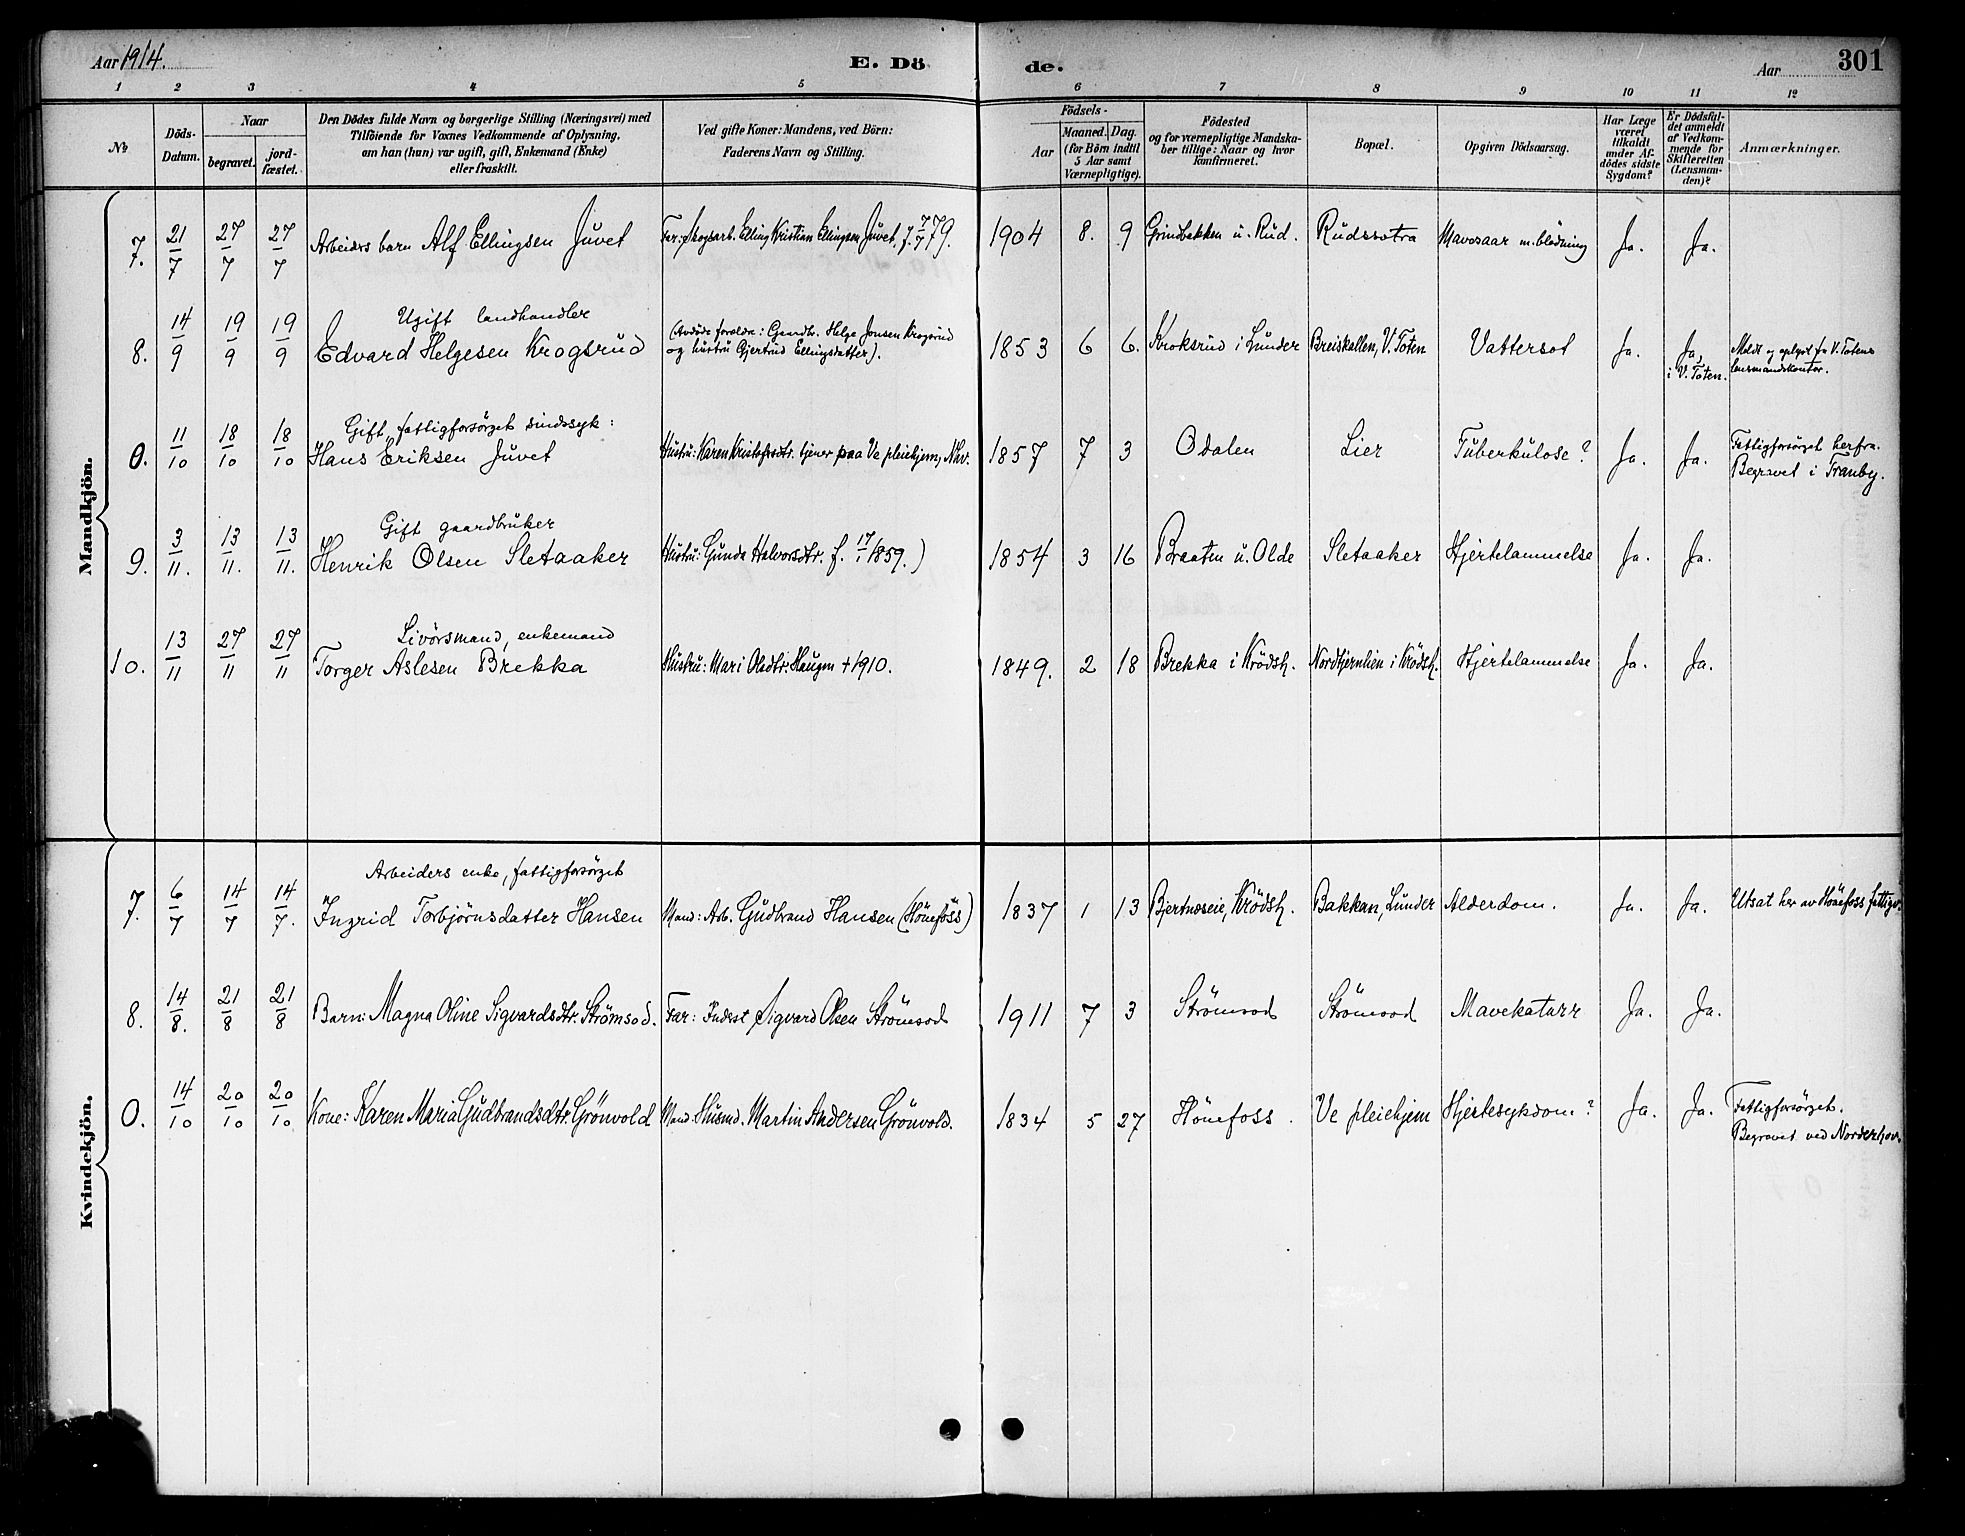 Aar 1914.
E. Dö
de.
Aar
301
1 2 3 4 5 6 7 8 9 10 11 12
№
Döds-Datum.
Naar
begravet.
jord-fæstet.
Den Dödes fulde Navn og borgerlige Stilling (Næringsvei) med
Tilföiende for Voxnes Vedkommende af Oplysning,
om han (hun) var ugift, gift, Enkemand (Enke)
eller fraskilt.
Ved gifte Koner: Mandens, ved Börn:
Faderens Navn og Stilling.
Födsels-
Aar
Maaned. Dag.
(for Börn indtil
5 Aar samt
Værnepligtige).
Födested
og for værnepligtige Mandska-
ber tillige: Naar og hvor
konfirmeret.
Bopæl.
Opgiven Dödsaarsag.
Har Læge
været
tilkaldt
under Af-
dödes sidste
Sygdom?
Er Dödsfal-
det anmeldt
af Vedkom-
mende for
Skifteretten
(Lensman-
den)?
Anmærkninger.
Mandkjön.
7. 21/7 27/7 27/7 Arbeiders barn Alf Ellingsen Juvet Far: Skogsarb. Elling Kristian Ellingsen Juvet, f. 7/7 79. 1904 8. 9 Grindbakken u. Rud. Rudssætra Mavesaar m. blödning Ja. Ja.
Ugift landhandler
8. 14/9 19/9 19/9 Edvard Helgesen Krogsrud (Avdöde forældre: Gaardbr. Helge Jonsen Krogsrud
og hustru Gjertrud Ellingsdatter). 1853 6 6. Kroksrud i Lunder Breiskallen, V. Toten Vattersot Ja. Ja, i V. Toten. Meldt og oplyst fra V. Totens
lensmandskontor.
Gift, fattigforsörget sindssyk:
0. 11/10 18/10 18/10 Hans Eriksen Juvet Hustru: Karen Kristofersdtr. tjener paa Ve pleiehjem, Nhv. 1857 7 3 Odalen Lier Tuberkulose? Ja. Ja. Fattigforsörget herfra.
Begravet i Tranby.
Gift gaardbruker
9. 3/11. 13/11. 13/11. Henrik Olsen Sletaaker Hustru: Gunda Halvorsdtr. f. 17/1 1859.) 1854 3 16 Braaten u. Olde Sletaaker Hjertelammelse Ja. Ja.
Livörsmand, enkemand
10. 13/11 27/11 27/11 Torger Aslesen Brekka Hustru: Mari Olsdtr. Haugen + 1910. 1849. 2 18 Brekka i Krödsh. Nordtjernlien i Krödsh. Hjertelammelse Ja. Ja.
Kvindekjön.
Arbeiders enke, fattigforsörget
7. 6/7 14/7 14/7. Ingrid Torbjörnsdatter Hansen Mand: Arb. Gudbrand Hansen (Hönefoss) 1837 1 13 Bjertnæseie, Krödsh. Bakkan, Lunder Alderdom. Ja. Ja. Utsat her av Hönefoss fattigv.
8. 14/8. 21/8 21/8 Barn: Magna Oline Sigvardsdtr. Strömsod. Far: Inderst Sigvard Olsen Strömsod 1911 7 3 Strömsod Strömsod Mavekatarr Ja. Ja.
0. 14/10 20/10 20/10 Kone: Karen Maria Gudbrandsdtr. Grönvold Mand: Husmd. Martin Andersen Grönvold. 1834 5 27 Hönefoss. Ve pleiehjem Hjertesykdom? Ja. Ja. Fattigforsörget.
Begravet ved Norderhov.